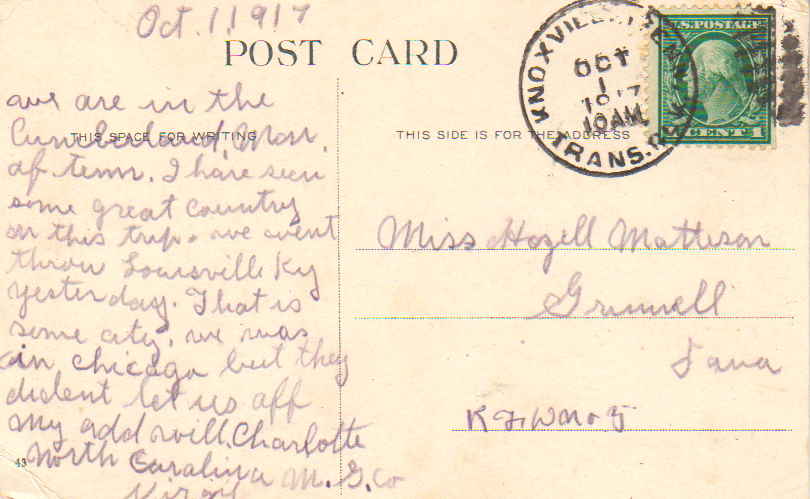 Oct. 1 1917
POST CARD
KNOXVILLE, TENN.
OCT
1
1917
10 AM
TRANS.
U.S. POSTAGE
THIS SPACE FOR WRITING
THIS SIDE IS FOR THE ADDRESS
ave are in the
Cumberland, Mon.
of tenn. I have seen
some great country
on this trip. we went
threw Louisville Ky
yesterday. That is
some city. we was
in chicago but they
dident let us off
My add will. Charlotte
North Caralina M. G. Co
Virgil
43
Miss Hazell Matteson
Grinnell
Iowa